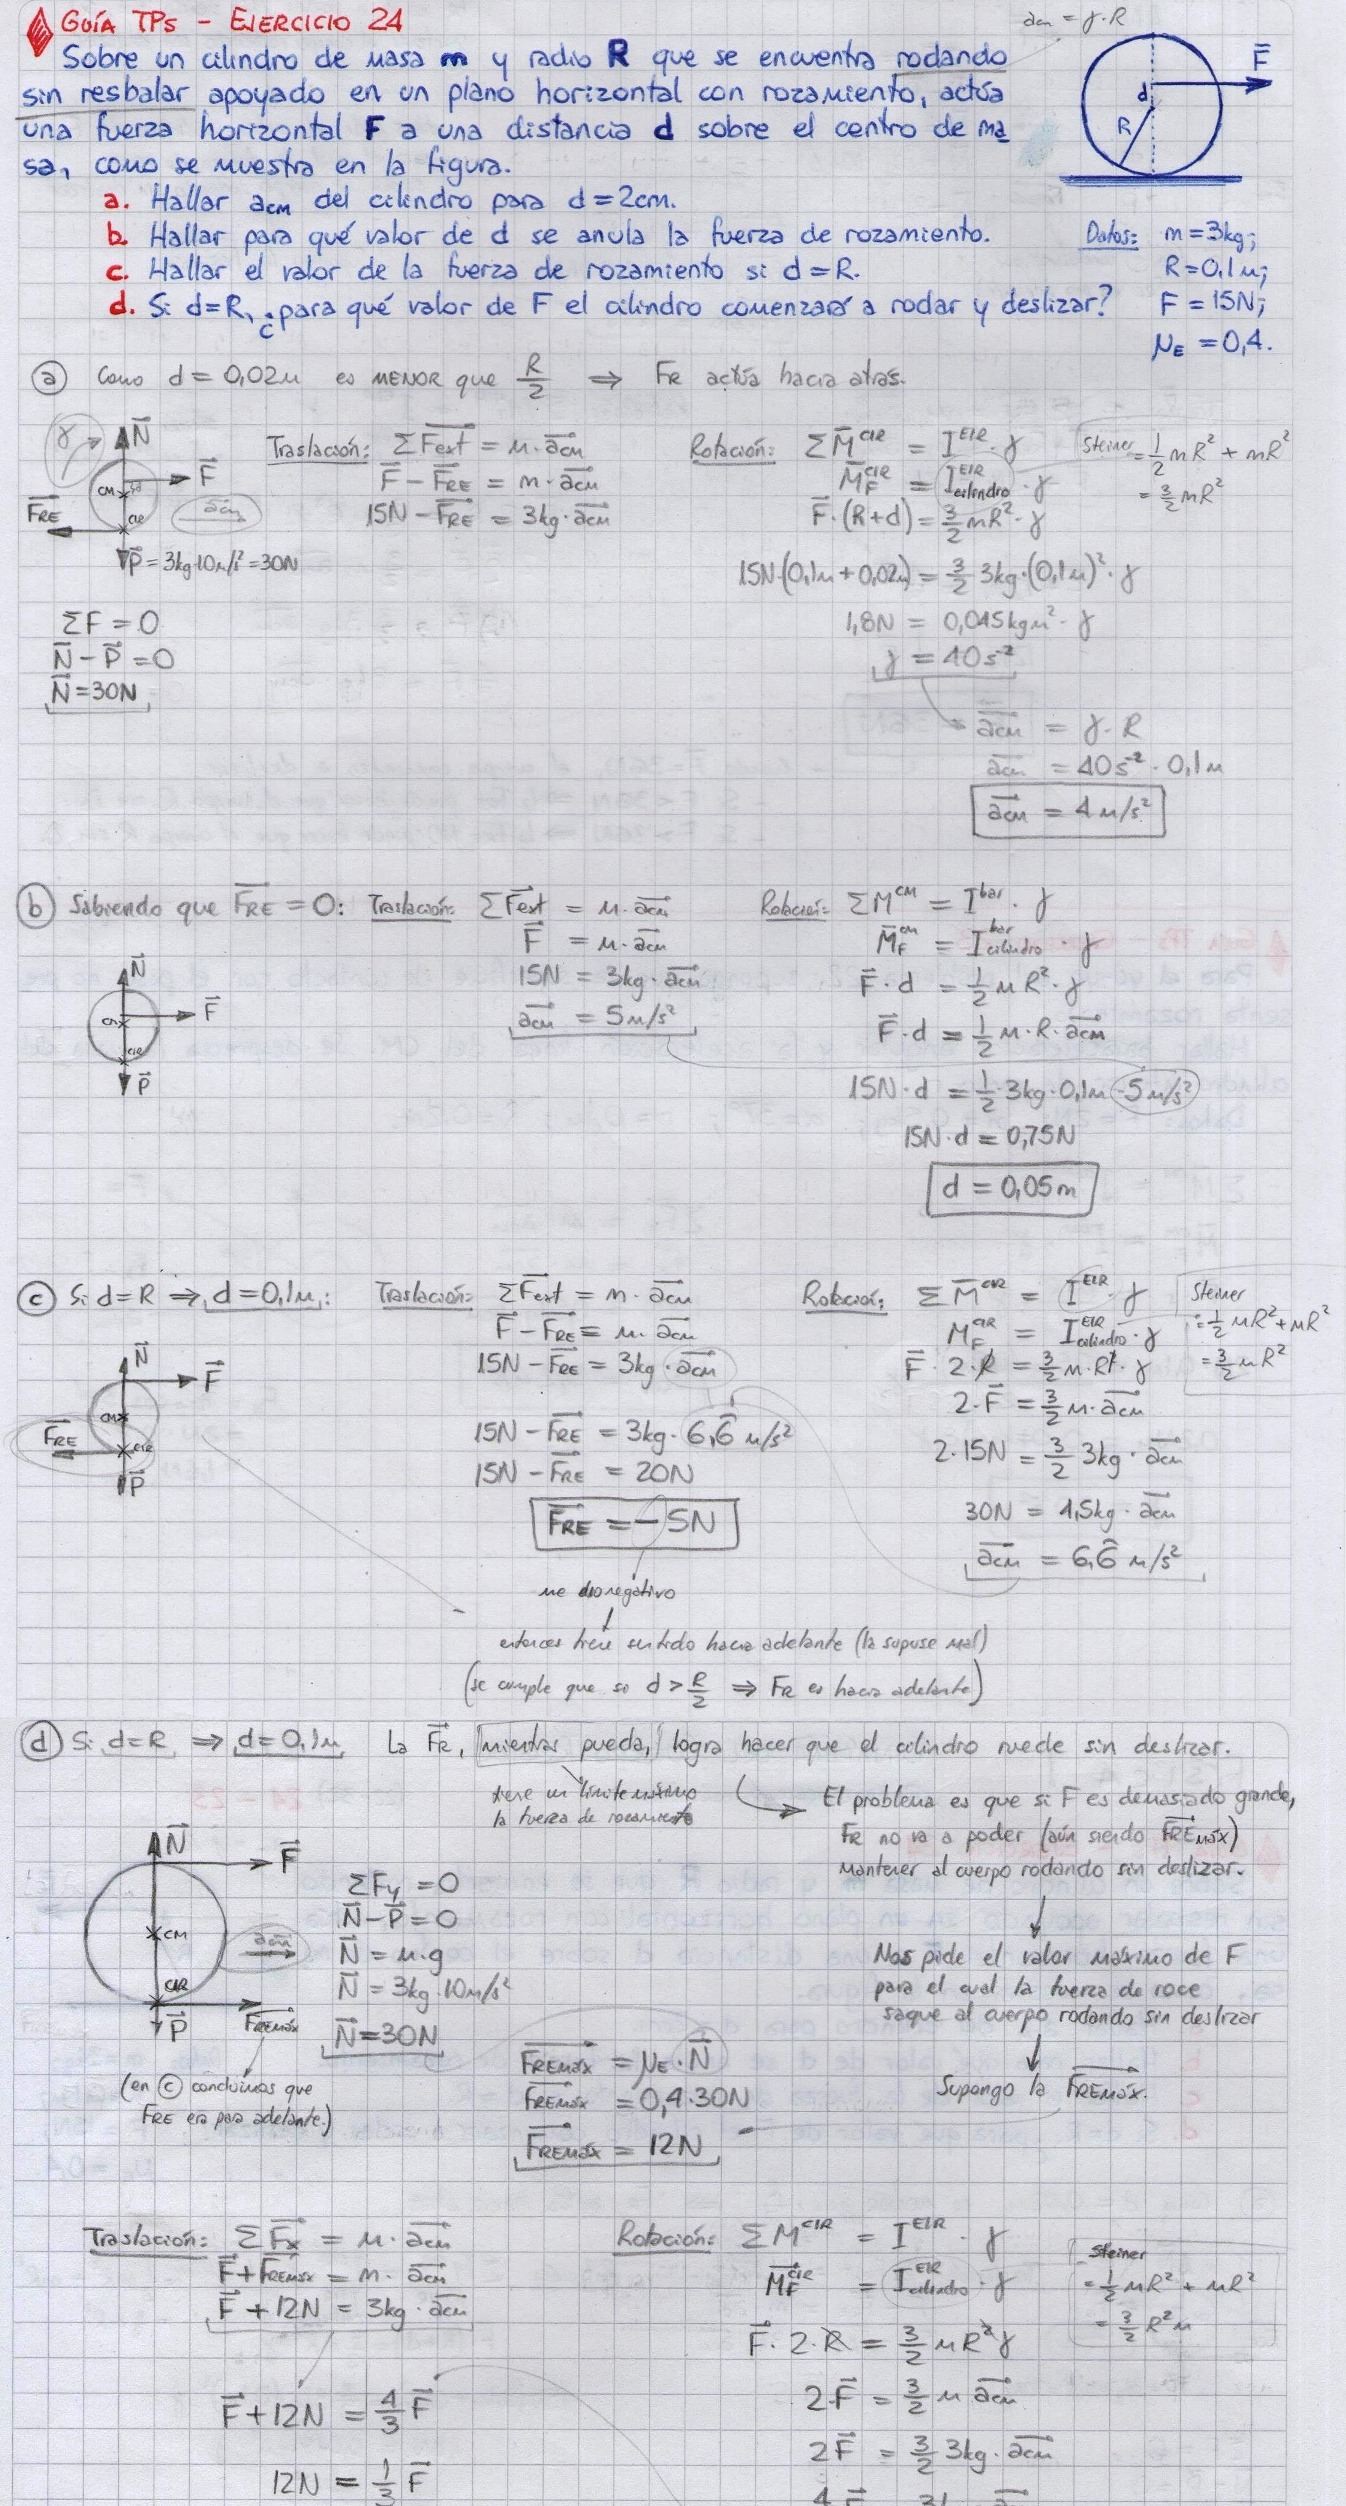 GUÍA TPs - EJERCICIO 24
acm = γ·R
Sobre un cilindro de masa m y radio R que se encuentra rodando
sin resbalar apoyado en un plano horizontal con rozamiento, actúa
una fuerza horizontal F a una distancia d sobre el centro de ma
sa, como se muestra en la figura.
a. Hallar acm del cilindro para d=2cm.
b. Hallar para qué valor de d se anula la fuerza de rozamiento.
c. Hallar el valor de la fuerza de rozamiento si d=R.
d. Si d=R, ¿para qué valor de F el cilindro comenzará a rodar y deslizar?
F
d
R
Datos: m=3kg;
R=0,1m;
F=15N;
μE=0,4.
a Como d=0,02m es MENOR que R/2 ⇒ FR actúa hacia atrás.
γ
N
F
CM
d
FRE
CIR
acm
P=3kg·10m/s²=30N
ΣF=0
N-P=0
N=30N
Traslación: ΣFext = m·acm
F-FRE = m·acm
15N-FRE = 3kg·acm
Rotación: ΣM^CIR = I^CIR·γ
MF^CIR = I^CIR cilindro·γ
F·(R+d) = 3/2 mR²·γ
15N·(0,1m+0,02m) = 3/2 3kg·(0,1m)²·γ
1,8N = 0,045kgm²·γ
γ = 40s⁻²
acm = γ·R
acm = 40s⁻²·0,1m
acm = 4m/s²
Steiner = 1/2 mR² + mR²
= 3/2 mR²
b Sabiendo que FRE=0:
N
F
CM
CIR
P
Traslación: ΣFext = m·acm
F = m·acm
15N = 3kg·acm
acm = 5m/s²
Rotación: ΣM^CM = I^bar·γ
MF^CM = I^bar cilindro·γ
F·d = 1/2 mR²·γ
F·d = 1/2 m·R·acm
15N·d = 1/2·3kg·0,1m·5m/s²
15N·d = 0,75N
d = 0,05m
c Si d=R ⇒ d=0,1m:
N
F
CM
FRE
CIR
P
Traslación: ΣFext = m·acm
F-FRE = m·acm
15N-FRE = 3kg·acm
15N-FRE = 3kg·6,6 m/s²
15N-FRE = 20N
FRE = -5N
me dio negativo
entonces tiene sentido hacia adelante (la supuse mal)
(se cumple que si d > R/2 ⇒ FR es hacia adelante)
Rotación: ΣM^CIR = I^CIR·γ
MF^CIR = I^CIR cilindro·γ
F·2·R = 3/2 m·R²·γ
2·F = 3/2 m·acm
2·15N = 3/2 3kg·acm
30N = 4,5kg·acm
acm = 6,6 m/s²
Steiner
= 1/2 mR²+mR²
= 3/2 mR²
d Si d=R ⇒ d=0,1m La FR, mientras pueda, logra hacer que el cilindro ruede sin deslizar.
tiene un límite máximo
la fuerza de rozamiento
El problema es que si F es demasiado grande,
FR no va a poder (aún siendo FREmáx)
mantener al cuerpo rodando sin deslizar.
Nos pide el valor máximo de F
para el cual la fuerza de roce
saque al cuerpo rodando sin deslizar
Supongo la FREmáx.
N
F
CM
acm
CIR
P
FREmáx
(en c concluimos que
FRE era para adelante.)
ΣFy=0
N-P=0
N = m·g
N = 3kg·10m/s²
N=30N
FREmáx = μE·N
FREmáx = 0,4·30N
FREmáx = 12N
Traslación: ΣFx = m·acm
F+FREmáx = m·acm
F+12N = 3kg·acm
F+12N = 4/3 F
12N = 1/3 F
Rotación: ΣM^CIR = I^CIR·γ
MF^CIR = I^CIR cilindro·γ
F·2·R = 3/2 mR²γ
2F = 3/2 m acm
2F = 3/2 3kg·acm
Steiner
= 1/2 mR² + mR²
= 3/2 R²m